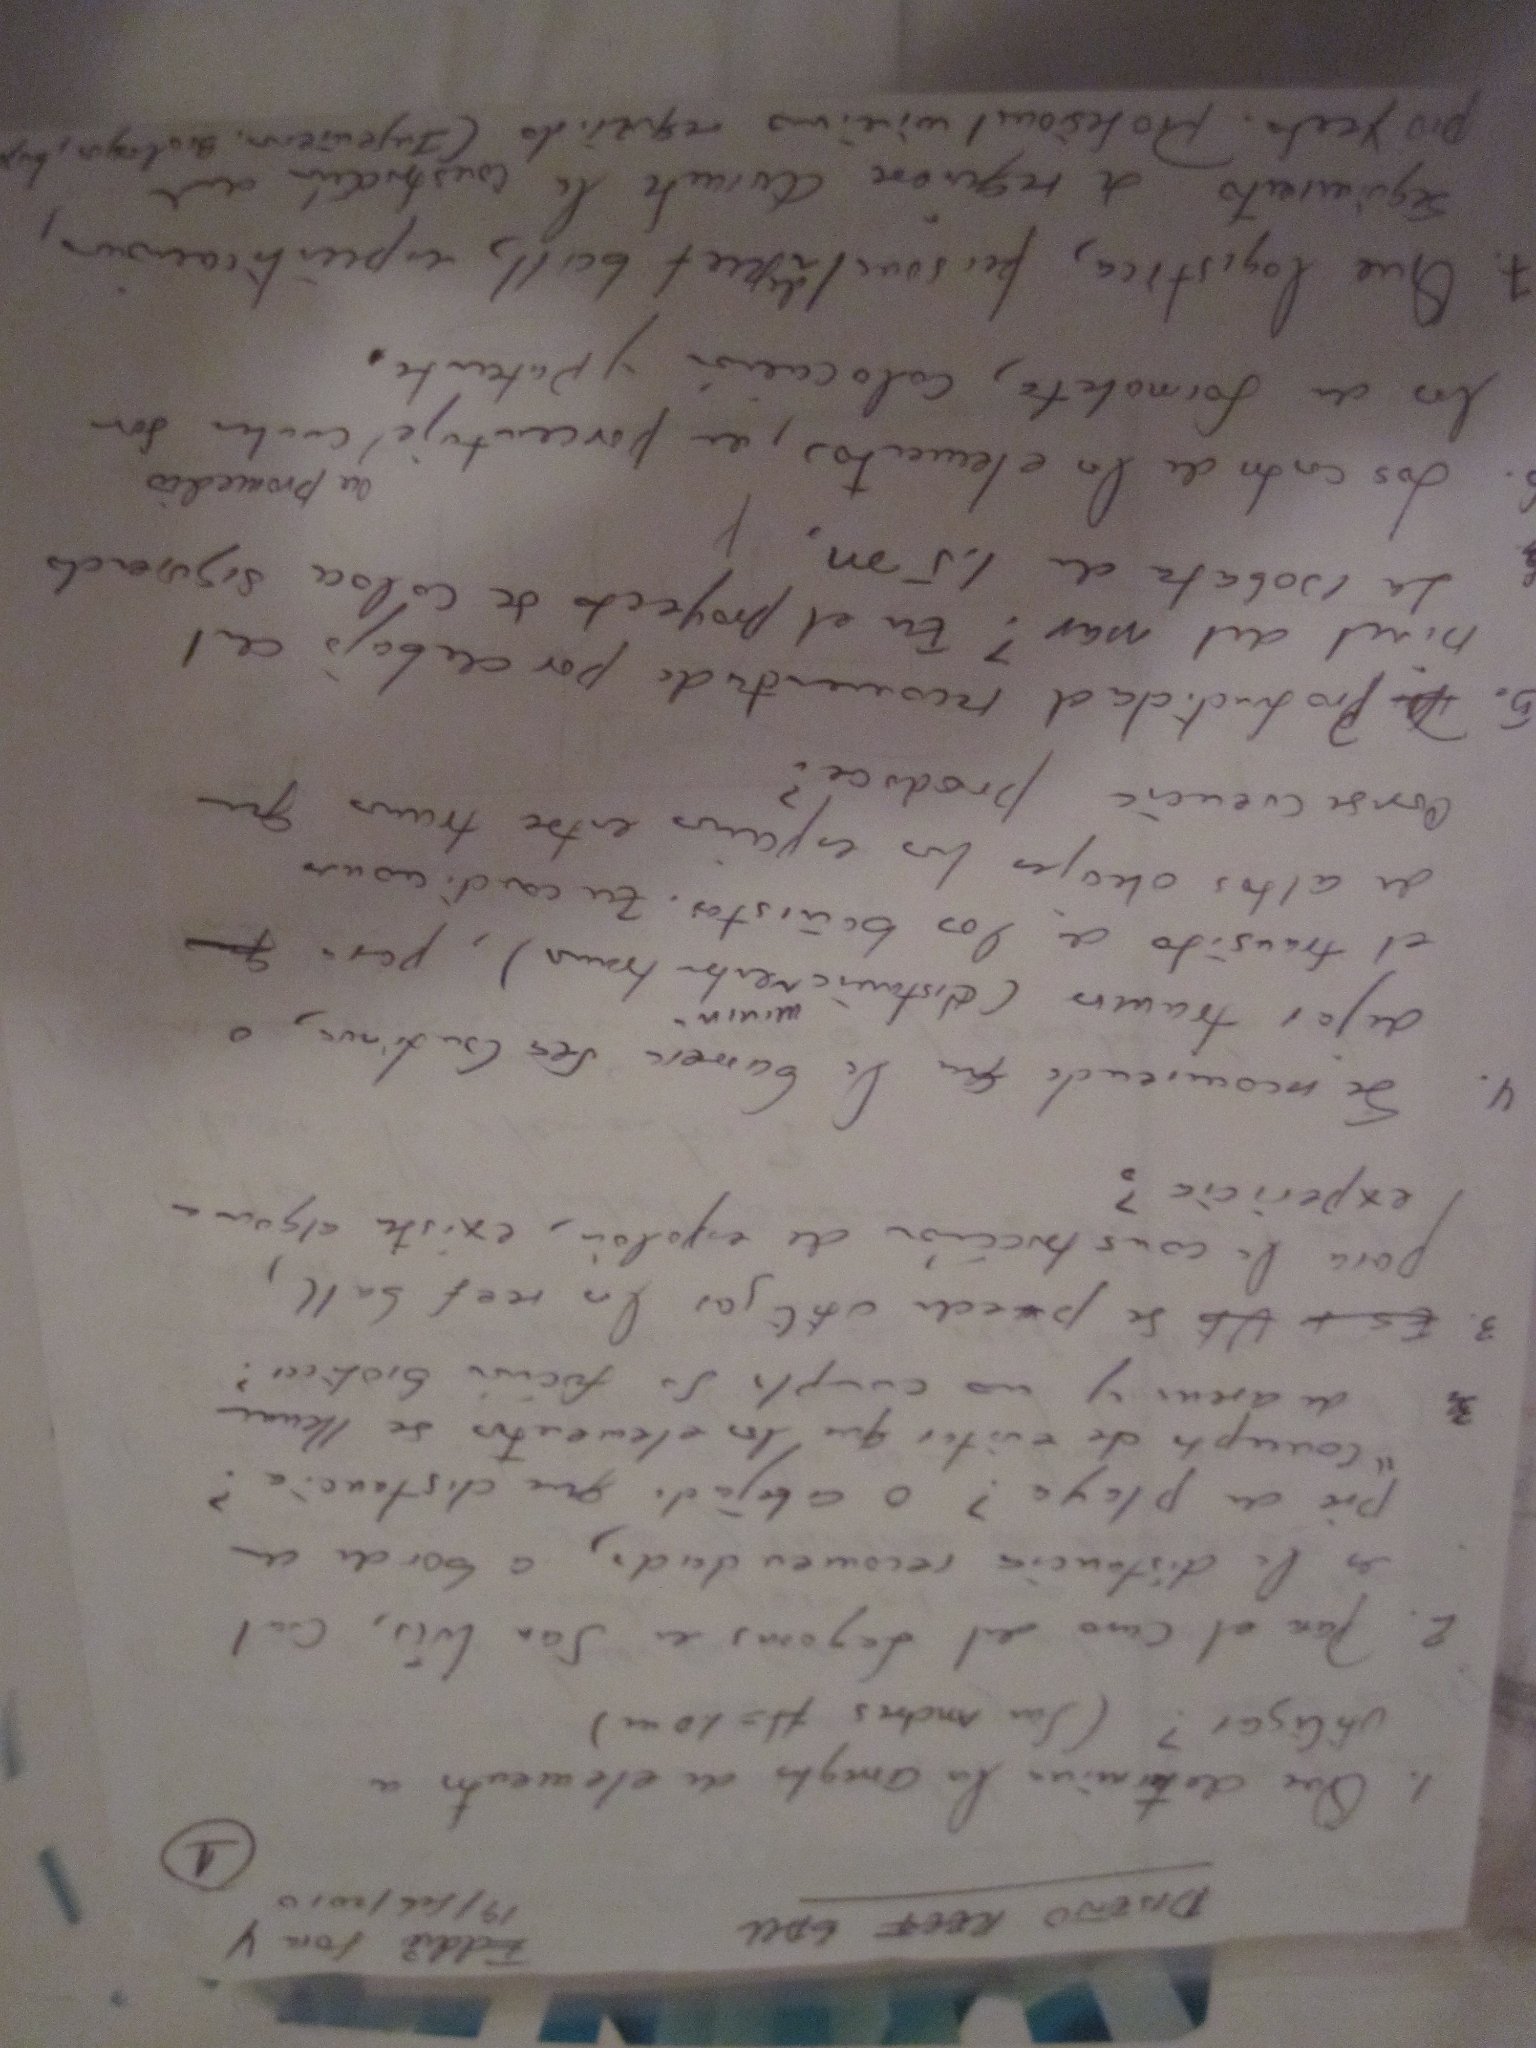 DISEÑO REEF BALL
19/feb/2010
1
1. Que determina la amplit de elemento a
utilizar? (San Andres H=10m)
2. Para el caso del Laguns en San Luis, Cual
es la distancia recomendada, a borde de
pie de playa? O alejado que distancia?
"Cumplo de evitar que los elementos se llenan
de arena y no cumple su función biotica?
3. Se puede utilizar los reef ball,
para la construcción de espolón, existe alguna
experiencia?
4. Se recomienda que la barrera sea Continua, o
dejar tramos (distancia entre tramos), para
minima
el transito de los bañistas. En condiciones
de altos oleajes los espacios entre tramos que
Consecuencia produce?
5. Profundidad recomendada por debajo del
nivel del mar? En el proyecto se coloca siguiendo
La isobata de 1.5 m.
6. Los costo de los elementos, en porcentaje cuales son
en promedio
los de formaleta, colocación y patente.
7. Que logística, personal reef ball, especificaciones,
seguimiento se requiere durante la construcción del
proyecto. Profesional minimo requerido (Ingenieros, biologos,